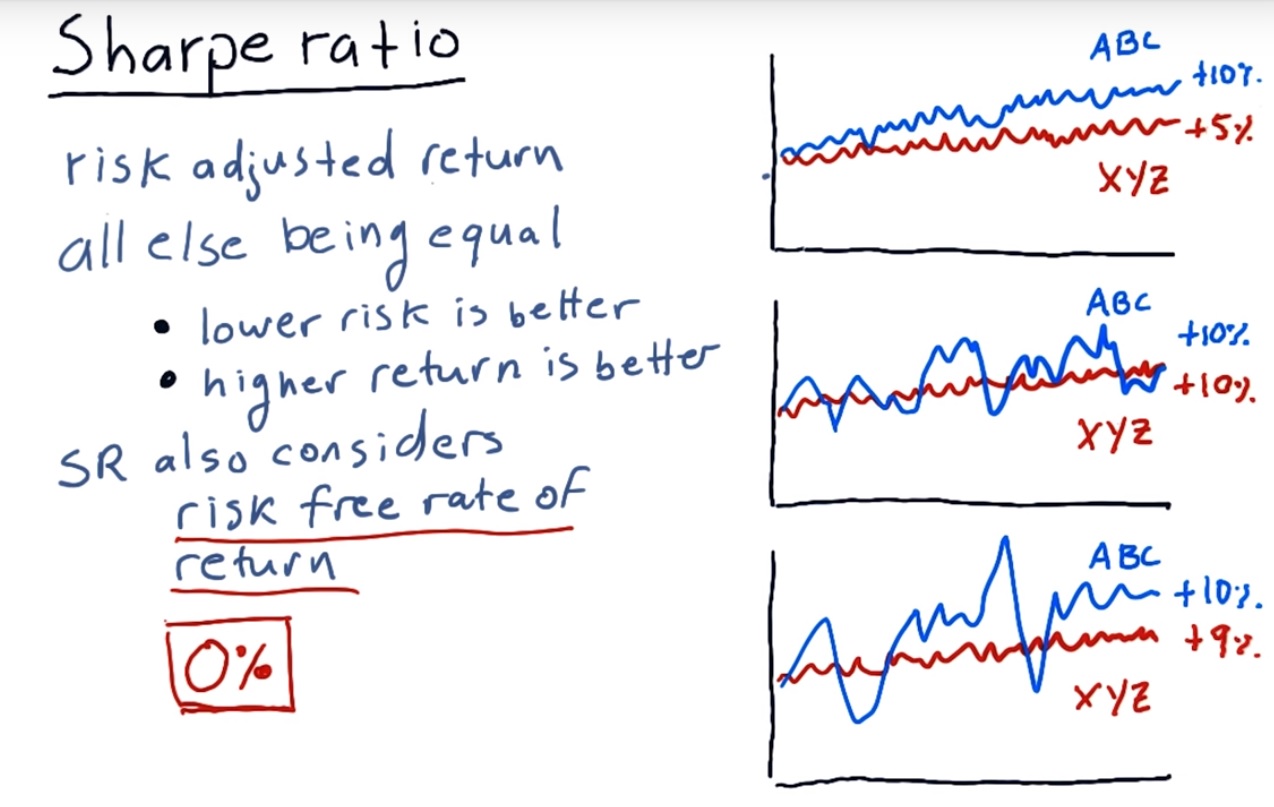 Sharpe ratio
risk adjusted return
all else being equal
• lower risk is better
• higher return is better
SR also considers
risk free rate of
return
0%
ABC
+10%
+5%
XYZ
ABC
+10%
+10%
XYZ
ABC
+10%
+9%
XYZ